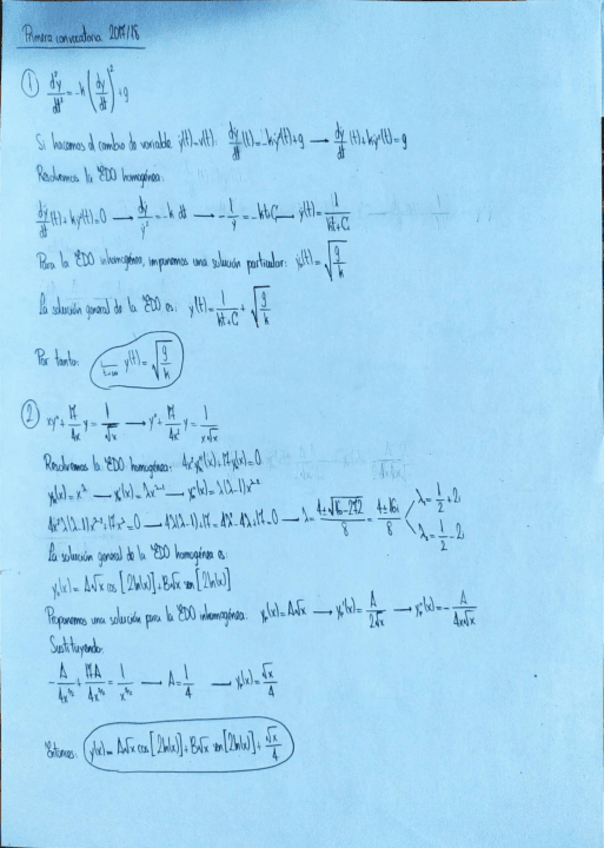 Primera convocatoria 2017/18
① d²y/dt² = -k (dy/dt)² + g
Si hacemos el cambio de variable ẏ(t)=v(t): dẏ/dt (t) = -kẏ²(t)+g → dẏ/dt (t)+kẏ²(t)=g
Resolvemos la EDO homogénea:
dẏ/dt (t)+kẏ²(t)=0 → dẏ/ẏ² = -k dt → -1/ẏ = -kt+C → ẏ(t) = 1/(kt+C)
Para la EDO inhomogénea, imponemos una solución particular: ẏₚ(t) = √(g/k)
La solución general de la EDO es: ẏ(t) = 1/(kt+C) + √(g/k)
Por tanto: lim t→∞ ẏ(t) = √(g/k)
② xy''+ 17/4x y = 1/√x → y''+ 17/4x² y = 1/x√x
Resolvemos la EDO homogénea: 4x²yₕ''(x)+17yₕ(x)=0
yₕ(x)=x^λ → yₕ'(x)=λx^(λ-1) → yₕ''(x)=λ(λ-1)x^(λ-2)
4x²λ(λ-1)x^(λ-2)+17x^λ=0 → 4λ(λ-1)+17=4λ²-4λ+17=0 → λ = (4±√(16-272))/8 = (4±16i)/8 λ₁= 1/2 +2i
λ₂= 1/2 -2i
La solución general de la EDO homogénea es:
yₕ(x)= A√x cos [2ln(x)]+B√x sen [2ln(x)]
Proponemos una solución para la EDO inhomogénea: yₚ(x)=A√x → yₚ'(x)= A/2√x → yₚ''(x)= - A/4x√x
Sustituyendo:
- A/4x^(3/2) + 17A/4x^(3/2) = 1/x^(3/2) → A= 1/4 → yₚ(x)= √x/4
Entonces: y(x)= A√x cos [2ln(x)]+B√x sen [2ln(x)]+ √x/4